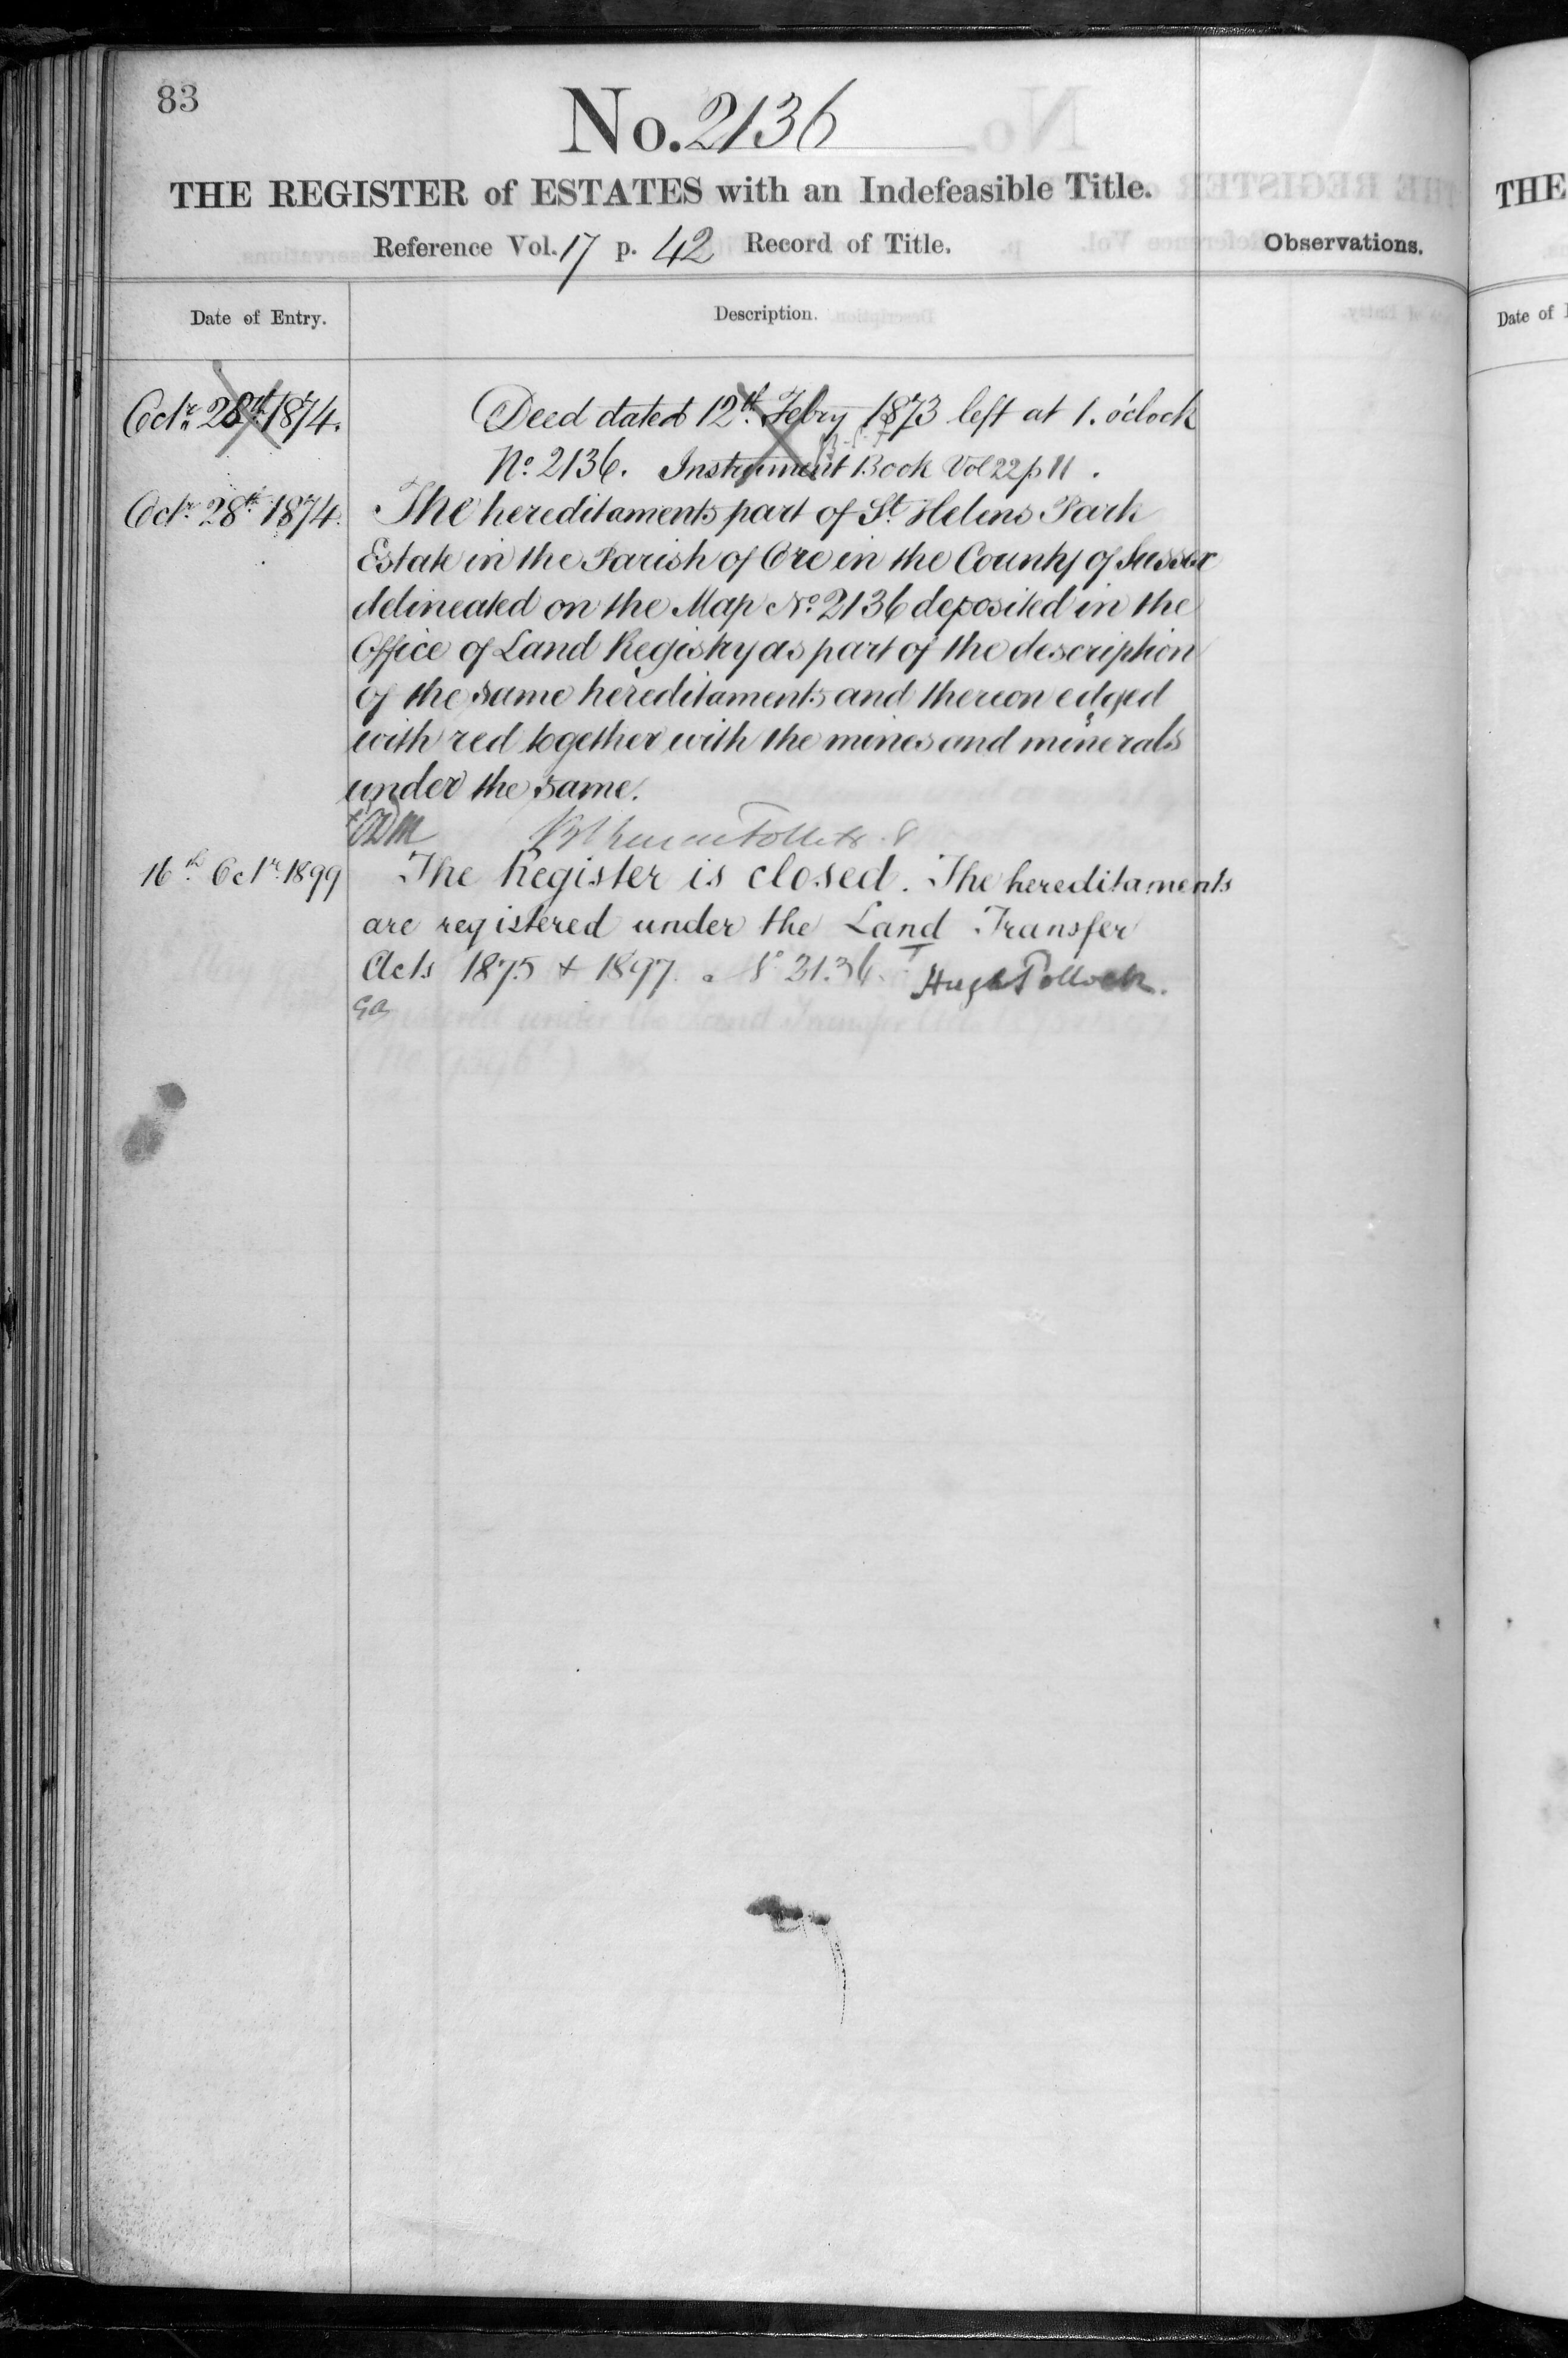 83
No. 2136
THE REGISTER of ESTATES with an Indefeasible Title.
Reference Vol. 17 p. 42 Record of Title.
Observations.
Date of Entry.
Description.
Octr. 28th 1874.
Deed dated 12th Febry 1873 left at 1. o'clock
No. 2136. Instrument Book Vol 22 p 11.
Octr. 28th 1874.
The hereditaments part of St. Helens Park
Estate in the Parish of Ore in the County of Sussex
delineated on the Map No. 2136 deposited in the
Office of Land Registry as part of the description
of the same hereditaments and thereon edged
with red together with the mines and minerals
under the same.
16th Octr. 1899
The Register is closed. The hereditaments
are registered under the Land Transfer
Acts 1875 & 1897. No
Hugh Pollock.
THE
Date of